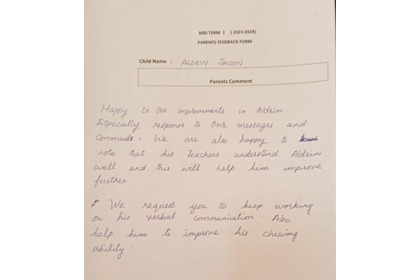 MID TERM 1 ( 2023-2024)
PARENTS FEEDBACK FORM
Child Name : ALDRIN JAISON
Parents Comment
Happy to see improvements in Aldrin.
Especially response to our messages and
Commands. We are also happy to
note that his teachers understand Aldrin
well and this will help him improve
further.
We request you to keep working
on his verbal communication. Also
help him to improve his chewing
ability.